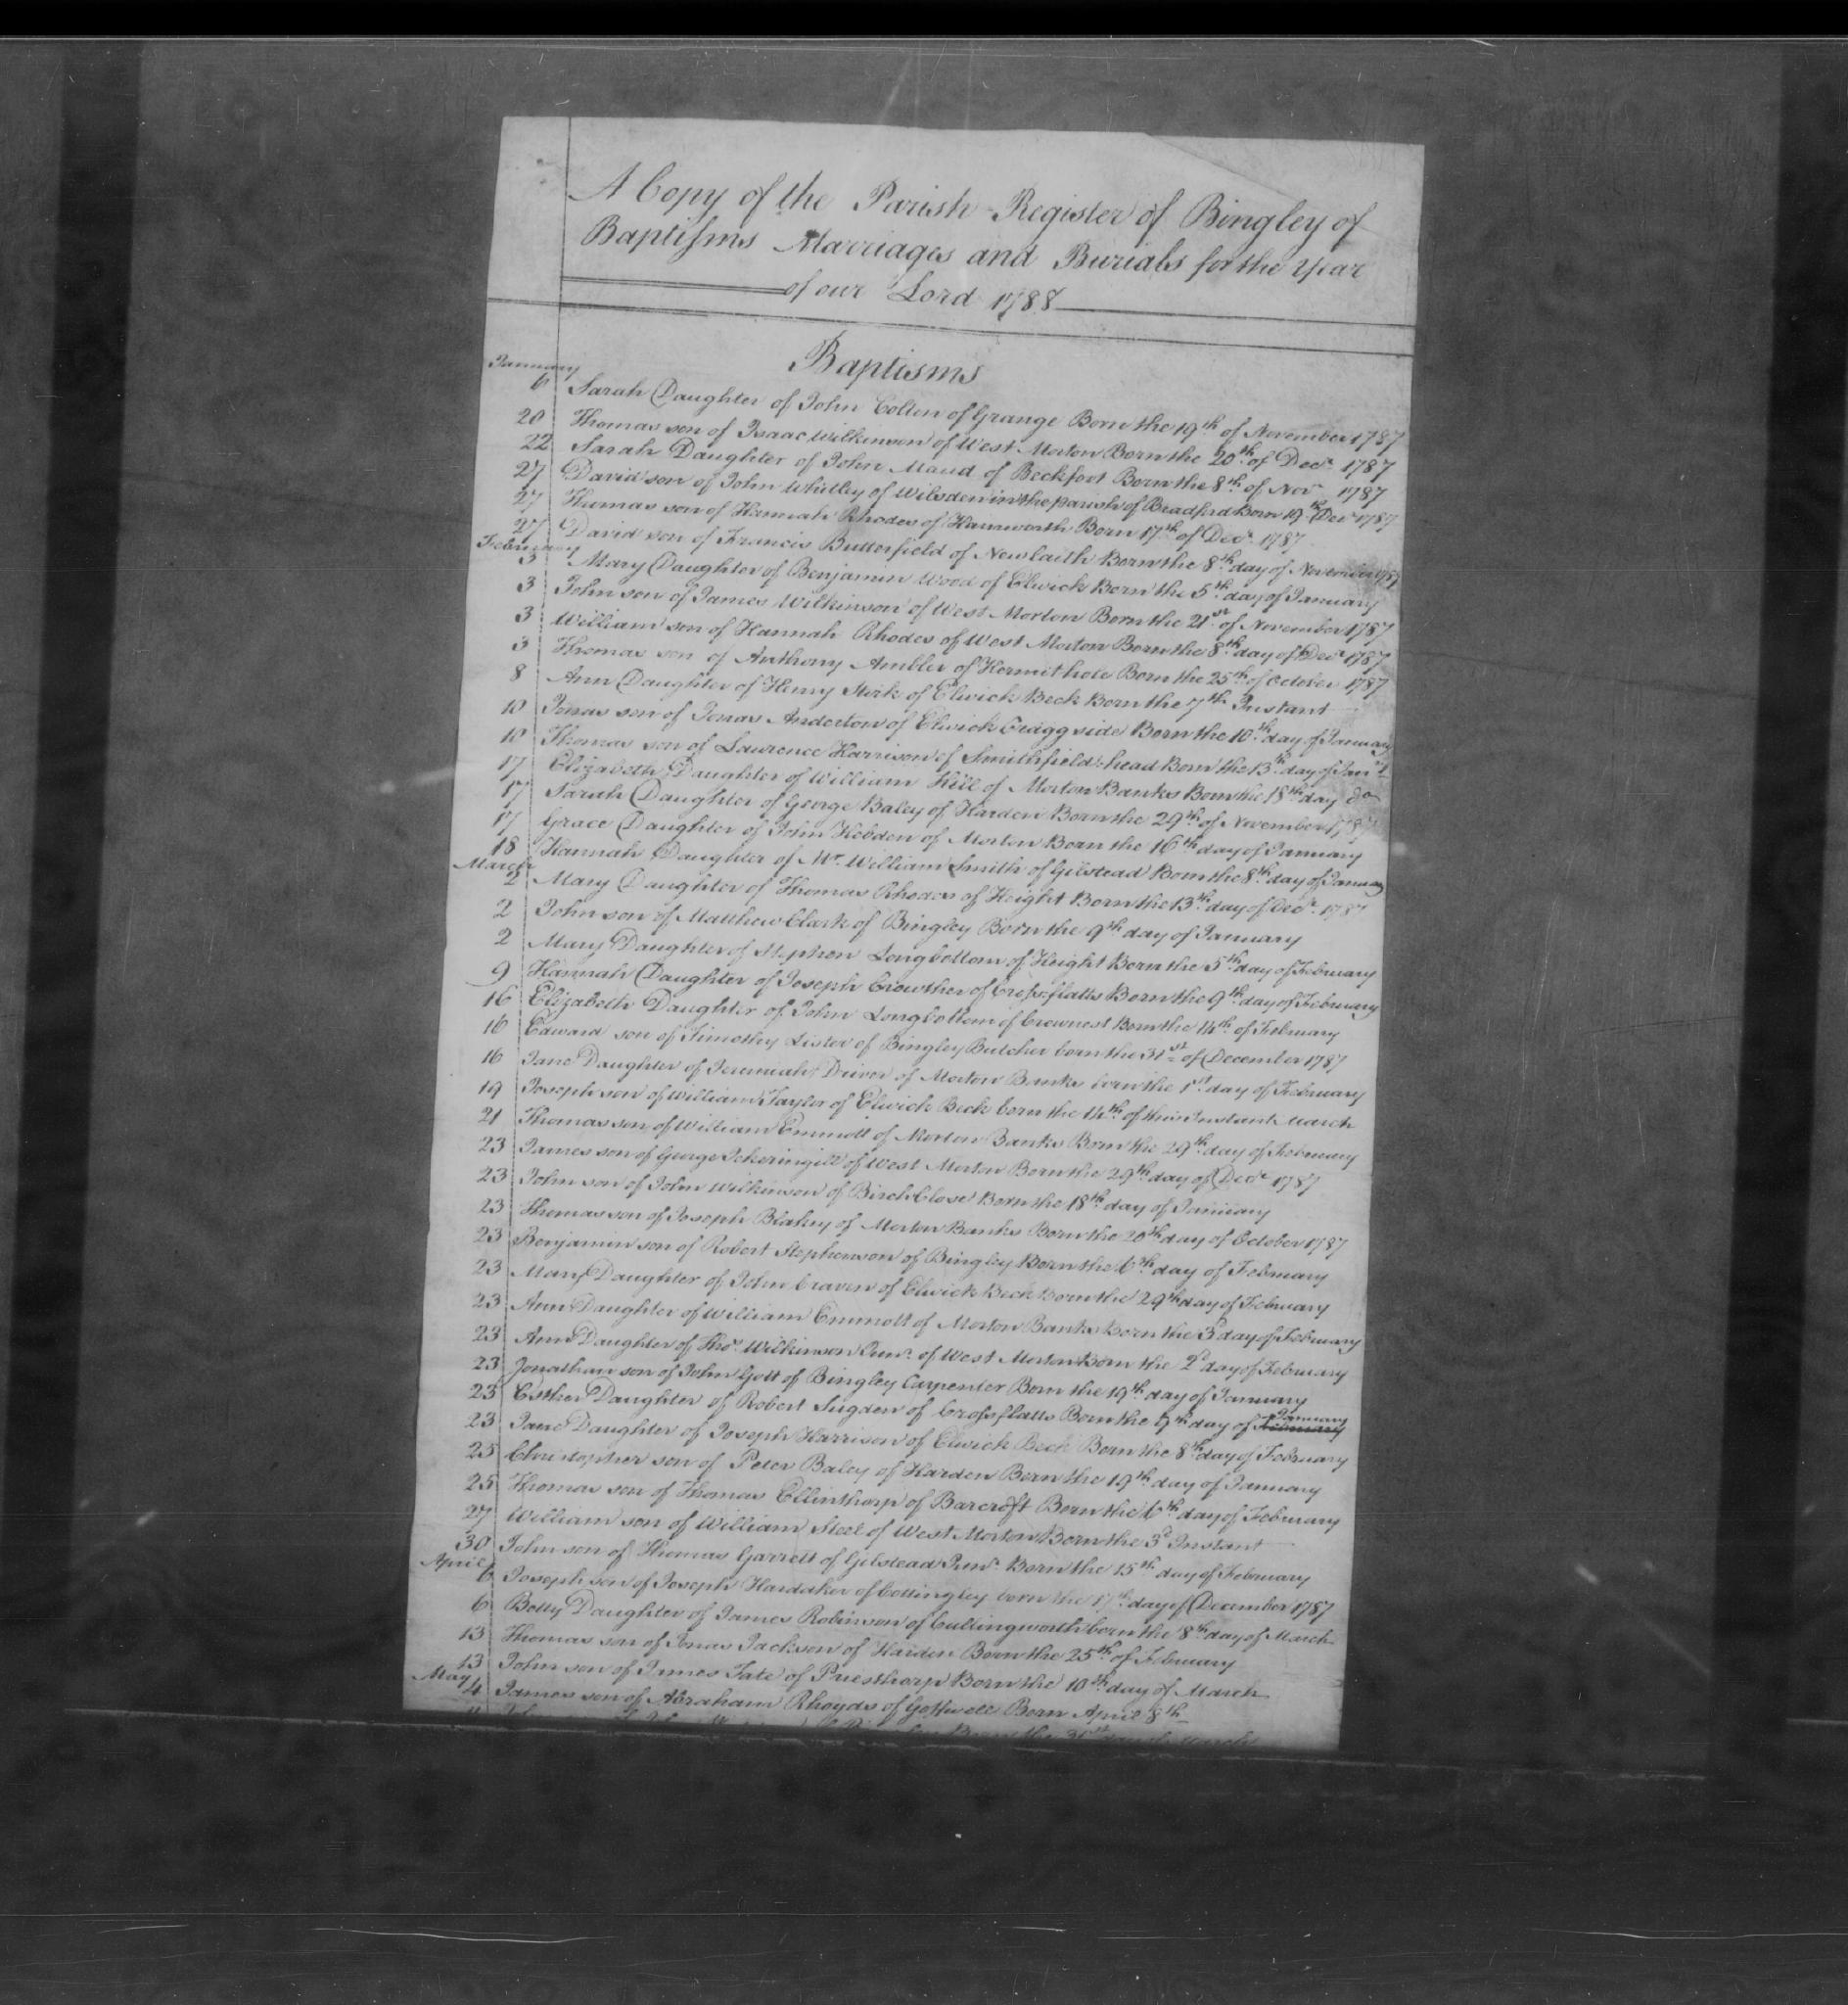 A Copy of the Parish Register of Bingley of
Baptisms Marriages and Burials for the Year
of our Lord 1788
Baptisms
January
6 Sarah Daughter of John Colten of Grange Born the 19th of November 1787
20 Thomas son of Isaac Wilkinson of West Morton Born the 20th of Decr 1787
22 Sarah Daughter of John Maud of Beckfoot Born the 8th of Novr 1787
27 David son of John Whitley of Wilsden in the parish of Bradford Born 19th Decr 1787
27 Thomas son of Hannah Rhodes of Hainworth Born 17th of Decr 1787
27 David son of Francis Butterfield of New laith Born the 8th day of November 1787
February
3 Mary Daughter of Benjamin Wood of Elwick Born the 5th day of January
3 John son of James Wilkinson of West Morton Born the 21st of November 1787
3 William son of Hannah Rhodes of West Morton Born the 8th day of Decr 1787
3 Thomas son of Anthony Ambler of Hermit hole Born the 25th of October 1787
8 Ann Daughter of Henry Stirk of Elwick Beck Born the 7th Instant
10 Jonas son of Jonas Anderton of Elwick Cragg side Born the 10th day of January
10 Thomas son of Lawrence Harrison of Smithfield head Born the 13th day of
17 Elizabeth Daughter of William Hill of Morton Banks Born the 18th day Do
17 Sarah Daughter of George Baley of Harden Born the 29th of November 1787
17 Grace Daughter of John Hebden of Morton Born the 16th day of January
18 Hannah Daughter of Mr William Smith of Gilstead Born the 8th day of January
March
2 Mary Daughter of Thomas Rhodes of Height Born the 13th day of Decr 1787
2 John son of Matthew Clark of Bingley Born the 9th day of January
2 Mary Daughter of Stephen Longbottom of Height Born the 5th day of February
9 Hannah Daughter of Joseph Crowther of Crossflatts Born the 9th day of February
16 Elizabeth Daughter of John Longbottom of Crownest Born the 14th of February
16 Edward son of Timothy Lister of Bingley Butcher born the 31st of December 1787
16 Jane Daughter of Jeremiah Driver of Morton Banks born the 1st day of February
19 Joseph son of William Taylor of Elwick Beck born the 14th of this Instant March
21 Thomas son of William Emmott of Morton Banks Born the 29th day of February
23 James son of George Ickeringill of West Morton Born the 29th day of Decr 1787
23 John son of John Wilkinson of Birch Close Born the 18th day of January
23 Thomas son of Joseph Blakey of Morton Banks Born the 20th day of October 1787
23 Benjamin son of Robert Stephenson of Bingley Born the 6th day of February
23 Mary Daughter of John Craven of Elwick Beck Born the 29th day of February
23 Ann Daughter of William Emmott of Morton Banks Born the 3d day of February
23 Ann Daughter of Thos Wilkinson Junr of West Morton Born the 2d day of February
23 Jonathan son of John Gott of Bingley Carpenter Born the 19th day of January
23 Esther Daughter of Robert Sugden of Crossflatts Born the 9th day of January
23 Jane Daughter of Joseph Harrison of Elwick Beck Born the 8th day of February
25 Christopher son of Peter Baley of Harden Born the 19th day of January
25 Thomas son of Thomas Ellinthorp of Barcroft Born the 6th day of February
27 William son of William Steel of West Morton Born the 3d Instant
30 John son of Thomas Garrett of Gilstead Junr Born the 15th day of February
April
6 Joseph son of Joseph Hardaker of Cottingley born the 17th day of December 1787
6 Betty Daughter of James Robinson of Cullingworth born the 8th day of March
13 Thomas son of Jonas Jackson of Harden Born the 25th of February
13 John son of James Tate of Priesthorp Born the 10th day of March
May
4 James son of Abraham Rhoyds of Born April 8th
Born the 31st